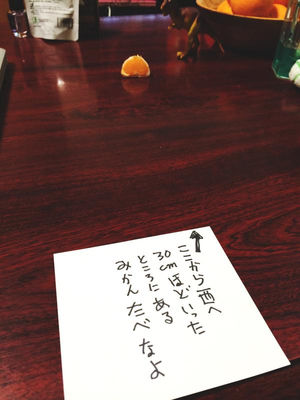 ここから西へ
30cmほどいった
ところにある
みかんたべなよ